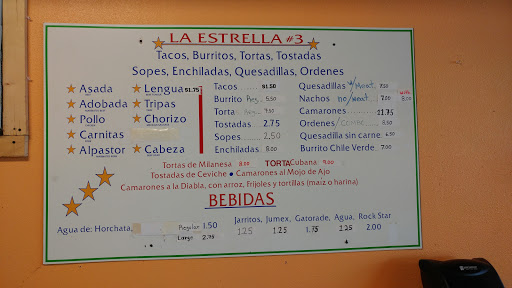 LA ESTRELLA #3
Tacos, Burritos, Tortas, Tostadas
Sopes, Enchiladas, Quesadillas, Ordenes
Asada
Adobada
Pollo
Carnitas
Alpastor
Lengua $1.75
Tripas
Chorizo
Cabeza
Tacos ...... $1.50
Burrito Reg. 5.50
Torta Reg.
Tostadas 2.75
Sopes .. 2.50
Enchiladas 8.00
Quesadillas w/meat.
Nachos no/meat 7.00 8.00
Camarones 11.75
Ordenes/
Quesadilla sin carne 6.50
Burrito Chile Verde 7.00
Tortas de Milanesa 8.00 TORTA Cubana 9.00
Tostadas de Ceviche • Camarones al Mojo de Ajo
Camarones a la Diabla, con arroz, frijoles y tortillas (maiz o harina)
BEBIDAS
Agua de: Horchata, Regular 1.50
Large 2.75
Jarritos, Jumex, Gatorade, Agua, Rock Star
1.25 1.25 1.75 1.25 2.00